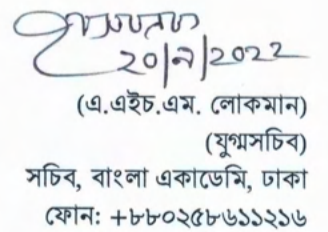 ২০|৯|2022
(এ.এইচ.এম. লোকমান)
(যুগ্মসচিব)
সচিব, বাংলা একাডেমি, ঢাকা
ফোন: +৮৮০২৫৮৬১১২১৬